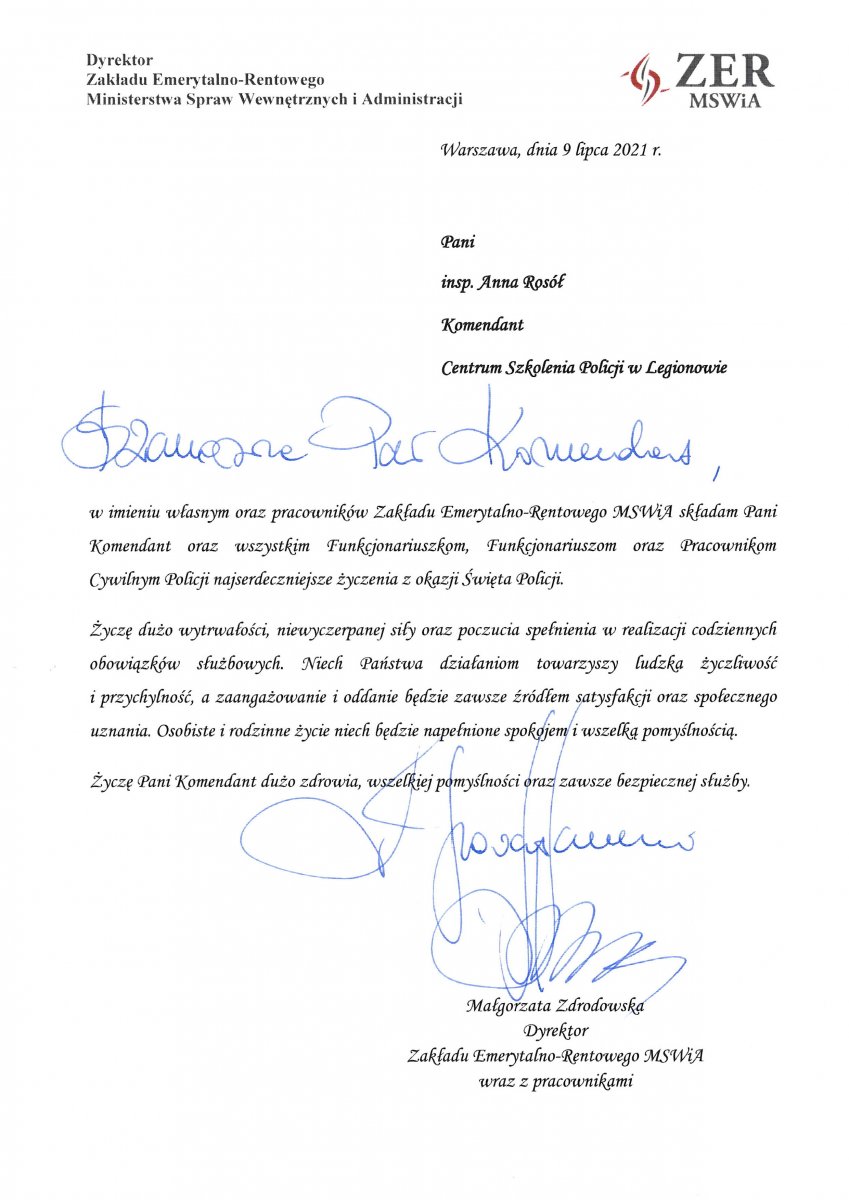 Dyrektor
Zakładu Emerytalno-Rentowego
Ministerstwa Spraw Wewnętrznych i Administracji
ZER
MSWiA
Warszawa, dnia 9 lipca 2021 r.
Pani
insp. Anna Rosół
Komendant
Centrum Szkolenia Policji w Legionowie
Szanowna Pani Komendant,
w imieniu własnym oraz pracowników Zakładu Emerytalno-Rentowego MSWiA składam Pani
Komendant oraz wszystkim Funkcjonariuszkom, Funkcjonariuszom oraz Pracownikom
Cywilnym Policji najserdeczniejsze życzenia z okazji Święta Policji.
Życzę dużo wytrwałości, niewyczerpanej siły oraz poczucia spełnienia w realizacji codziennych
obowiązków służbowych. Niech Państwa działaniom towarzyszy ludzka życzliwość
i przychylność, a zaangażowanie i oddanie będzie zawsze źródłem satysfakcji oraz społecznego
uznania. Osobiste i rodzinne życie niech będzie napełnione spokojem i wszelką pomyślnością.
Życzę Pani Komendant dużo zdrowia, wszelkiej pomyślności oraz zawsze bezpiecznej służby.
Małgorzata Zdrodowska
Dyrektor
Zakładu Emerytalno-Rentowego MSWiA
wraz z pracownikami